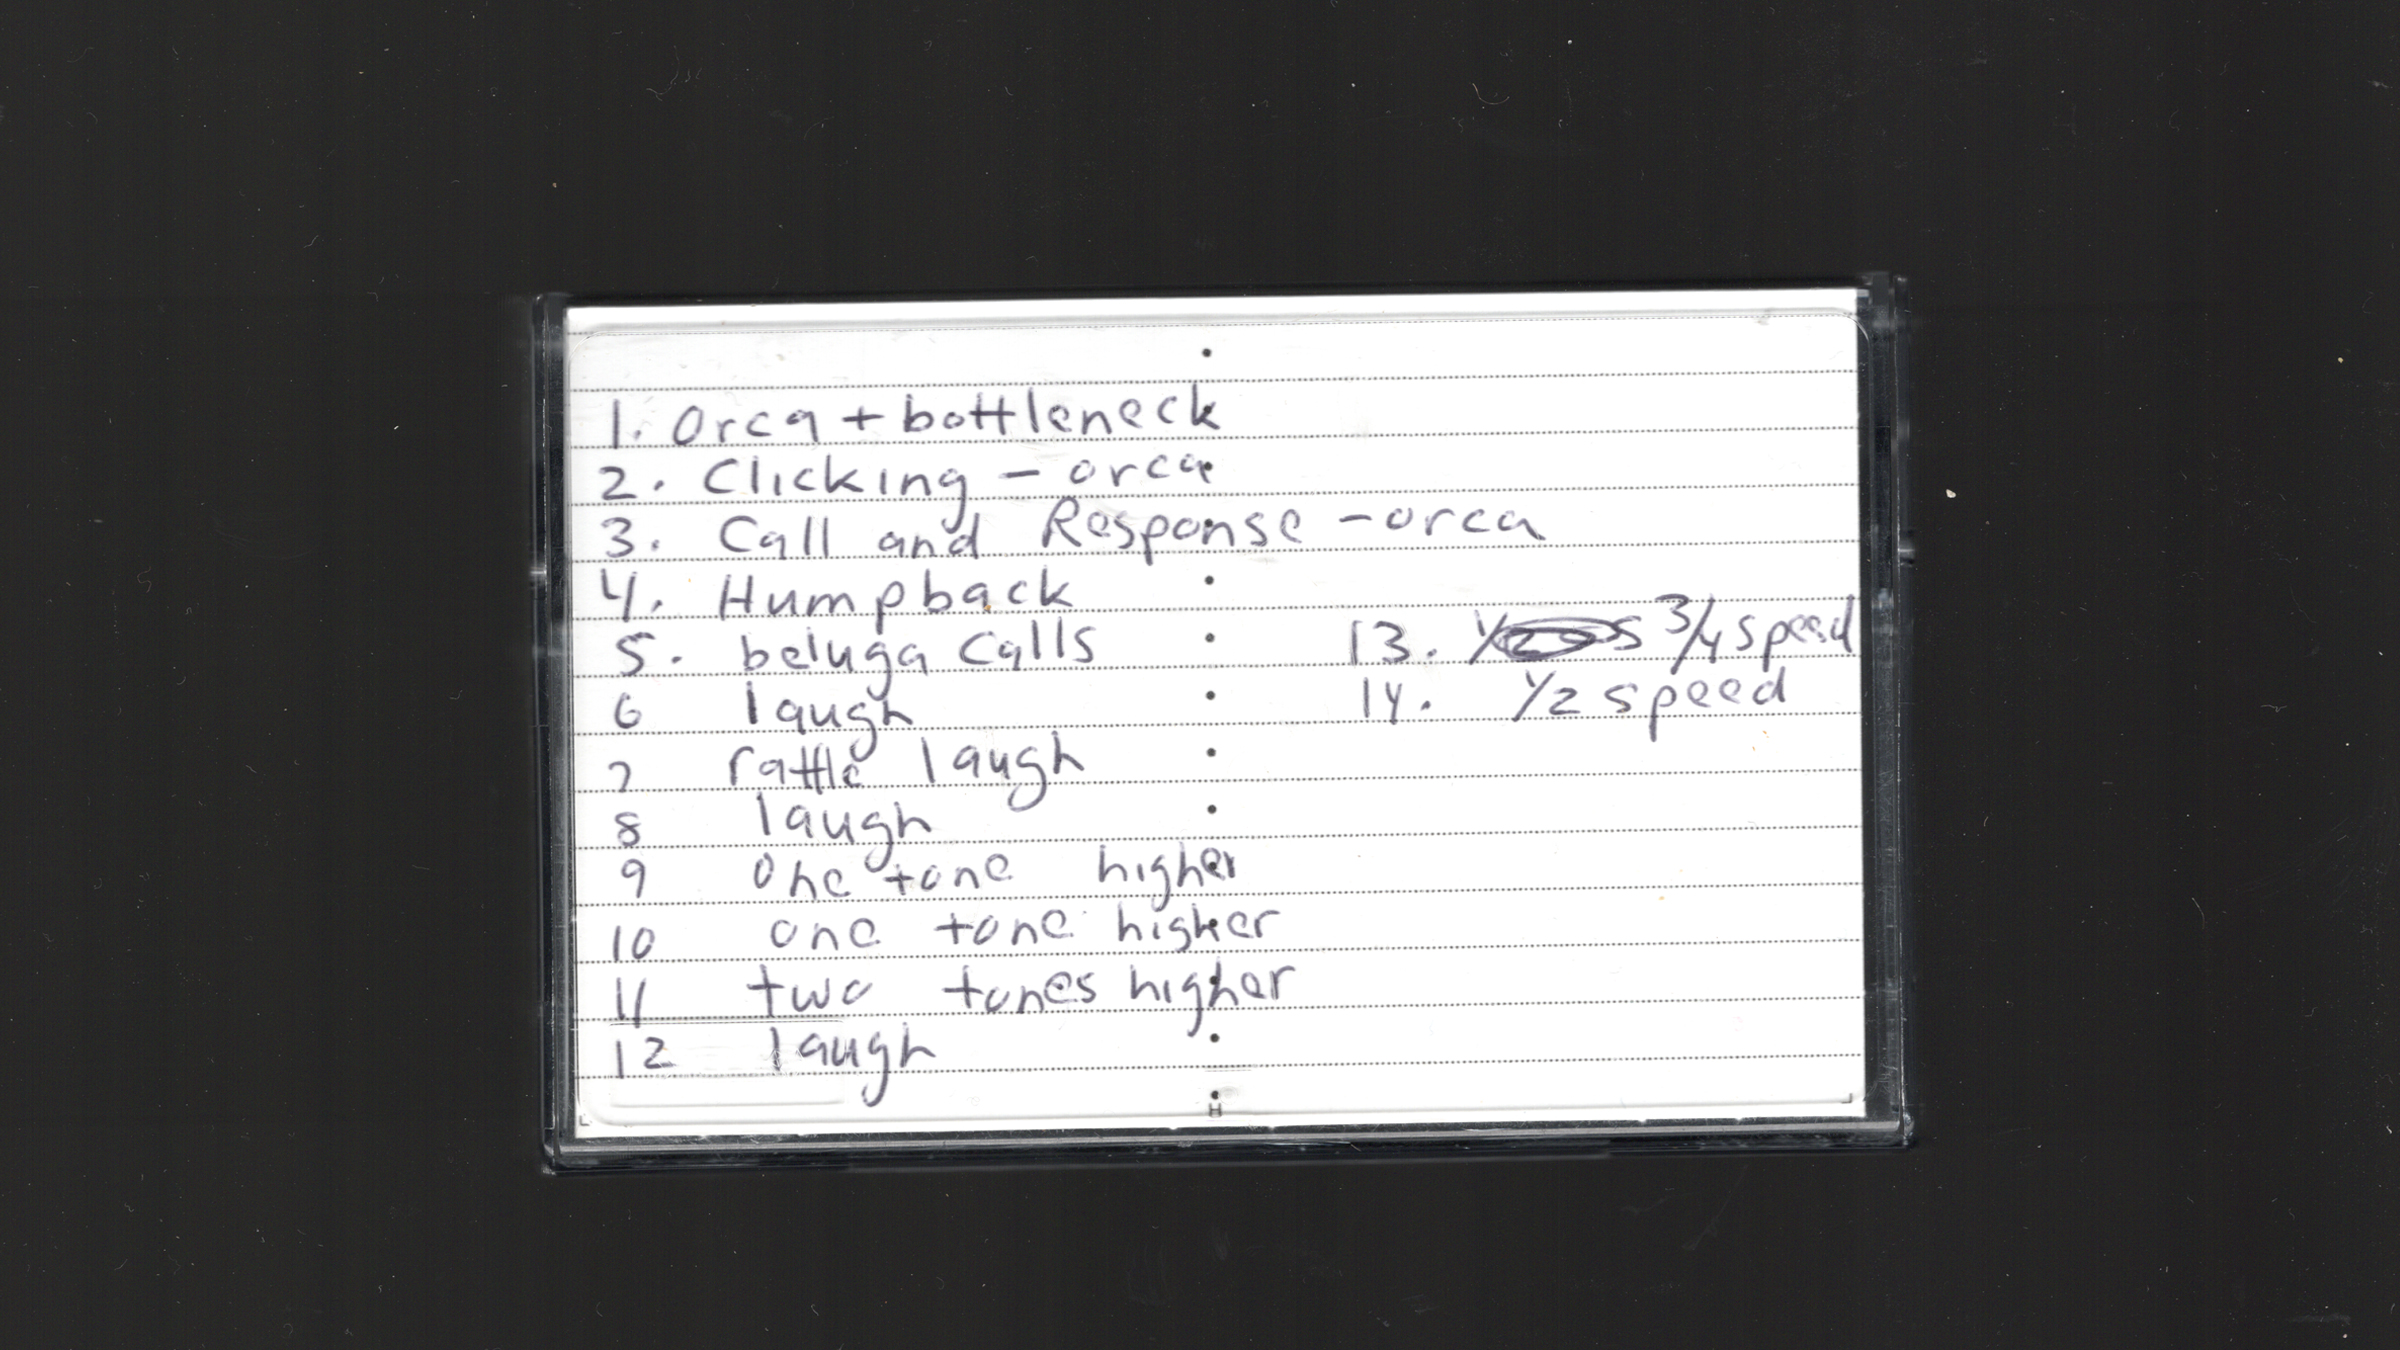 1. Orca + bottleneck
2. Clicking - orca
3. Call and Response - orca
4. Humpback
5. beluga calls
6 laugh
7 rattle laugh
8 laugh
9 one tone higher
10 one tone higher
11 two tones higher
12 laugh
13. 3/4 speed
14. 1/2 speed